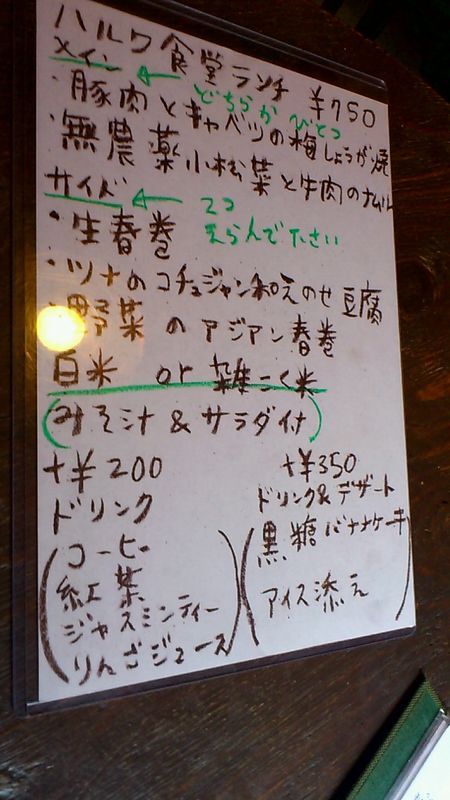 ハルワ食堂ランチ ¥750
メイン ← どちらかひとつ
・豚肉とキャベツの梅しょうが焼
無農薬小松菜と牛肉のナムル
サイド ← 2コえらんでださい
・生春巻
・ツナのコチュジャン和えのせ豆腐
・野菜のアジアン春巻
白米 or 雑こく米
(みそ汁 & サラダ付)
+¥200
ドリンク
(コーヒー
紅茶
ジャスミンティー
りんごジュース)
+¥350
ドリンク&デザート
(黒糖バナナケーキ
アイス添え)